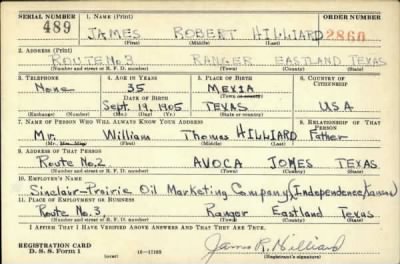 SERIAL NUMBER 1. NAME (Print) ORDER NUMBER
489 JAMES ROBERT HILLIARD 2860
(First) (Middle) (Last)
2. ADDRESS (Print)
ROUTE NO. 3 RANGER EASTLAND TEXAS
(Number and street or R. F. D. number) (Town) (County) (State)
3. TELEPHONE 4. AGE IN YEARS 5. PLACE OF BIRTH 6. COUNTRY OF CITIZENSHIP
None 35 MEXIA
DATE OF BIRTH (Town or county)
Sept. 19, 1905 TEXAS USA
(Exchange) (Number) (Mo.) (Day) (Yr.) (State or country)
7. NAME OF PERSON WHO WILL ALWAYS KNOW YOUR ADDRESS 8. RELATIONSHIP OF THAT PERSON
Mr. William Thomas HILLIARD Father
(Mr., Mrs., Miss) (First) (Middle) (Last)
9. ADDRESS OF THAT PERSON
Route No. 2 AVOCA JONES TEXAS
(Number and street or R. F. D. number) (Town) (County) (State)
10. EMPLOYER'S NAME
Sinclair-Prairie Oil Marketing Company (Independence, Kansas)
11. PLACE OF EMPLOYMENT OR BUSINESS
Route No. 3 Ranger Eastland Texas
(Number and street or R. F. D. number) (Town) (County) (State)
I AFFIRM THAT I HAVE VERIFIED ABOVE ANSWERS AND THAT THEY ARE TRUE.
REGISTRATION CARD
D. S. S. Form 1 (over) James R. Hilliard
(Registrant's signature)